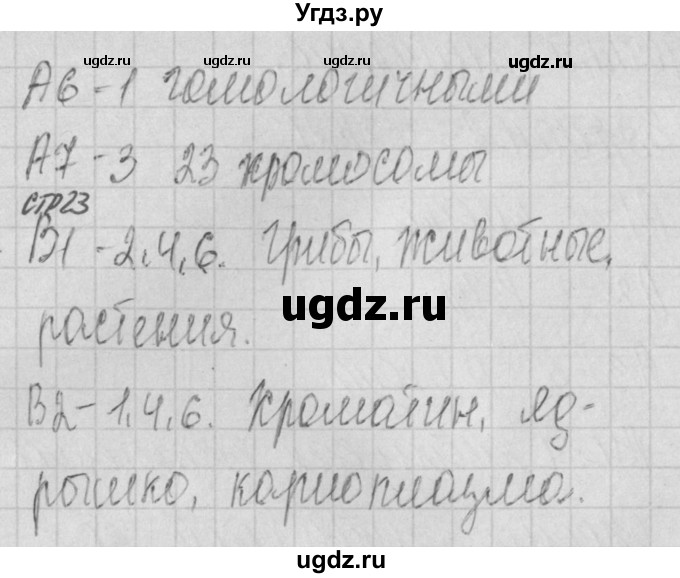 Угдз.ру
ugdz.ru ugdz.ru ugdz.ru ugdz.ru
А6 - 1 гомологичными
А7 - 3 23 хромосомы
стр 23
В1 - 2,4,6. Грибы, животные,
ugdz.ru
растения.
В2 - 1,4,6. Хроматин, яд-
рышко, кариоплазма.
ugdz.ru